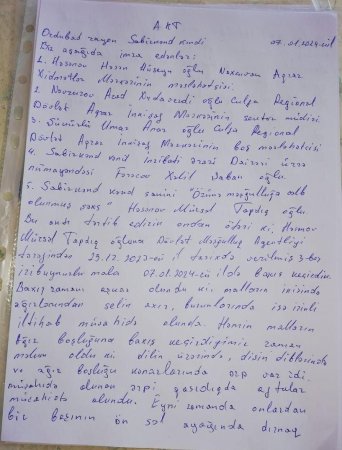 AKT
Ordubad rayon Sabirkənd kəndi 07.01.2024-cü il
Biz aşağıda imza edənlər:
1. Həsənov Həsən Hüseyn oğlu Naxçıvan Aqrar
Xidmətlər Mərkəzinin məsləhətçisi.
2. Novruzov Azad Xudaverdi oğlu Culfa Regional
Dövlət Aqrar İnkişaf Mərkəzinin sektor müdiri
3. Umar Anar oğlu Culfa Regional
Dövlət Aqrar İnkişaf Mərkəzinin baş məsləhətçisi
4. Sabirkənd kənd İnzibati ərazi Dairəsi üzrə
nümayəndəsi Fərəcov Xəlil Şaban oğlu.
5. Sabirkənd kənd sakini "Özünüməşğulluğa cəlb
olunmuş şəxs" Həsənov Mürsəl Tapdıq oğlu.
Bu aktı tərtib edirik ondan ötəri ki, Həsənov
Mürsəl Tapdıq oğluna Dövlət Məşğulluq Agentliyi
tərəfindən 29.12.2023-cü il tarixdə verilmiş 3 baş
iribuynuzlu mala 07.01.2024-cü ildə baxış keçirdim.
Baxış zamanı aşkar olundu ki, malların ikisində
ağızlarından selin axır, burunlarında isə irinli
iltihab müşahidə olundu. Həmin malların
Ağız boşluğuna baxış keçirdiyimiz zaman
məlum oldu ki, dilin üzərində, dişin diblərində
və ağız boşluğu kənarlarında ərp var idi.
müşahidə olunan ərpi qaşıdıqda aftalar
müşahidə olundu. Eyni zamanda onlardan
bir başının ön sol ayağında dırnaq